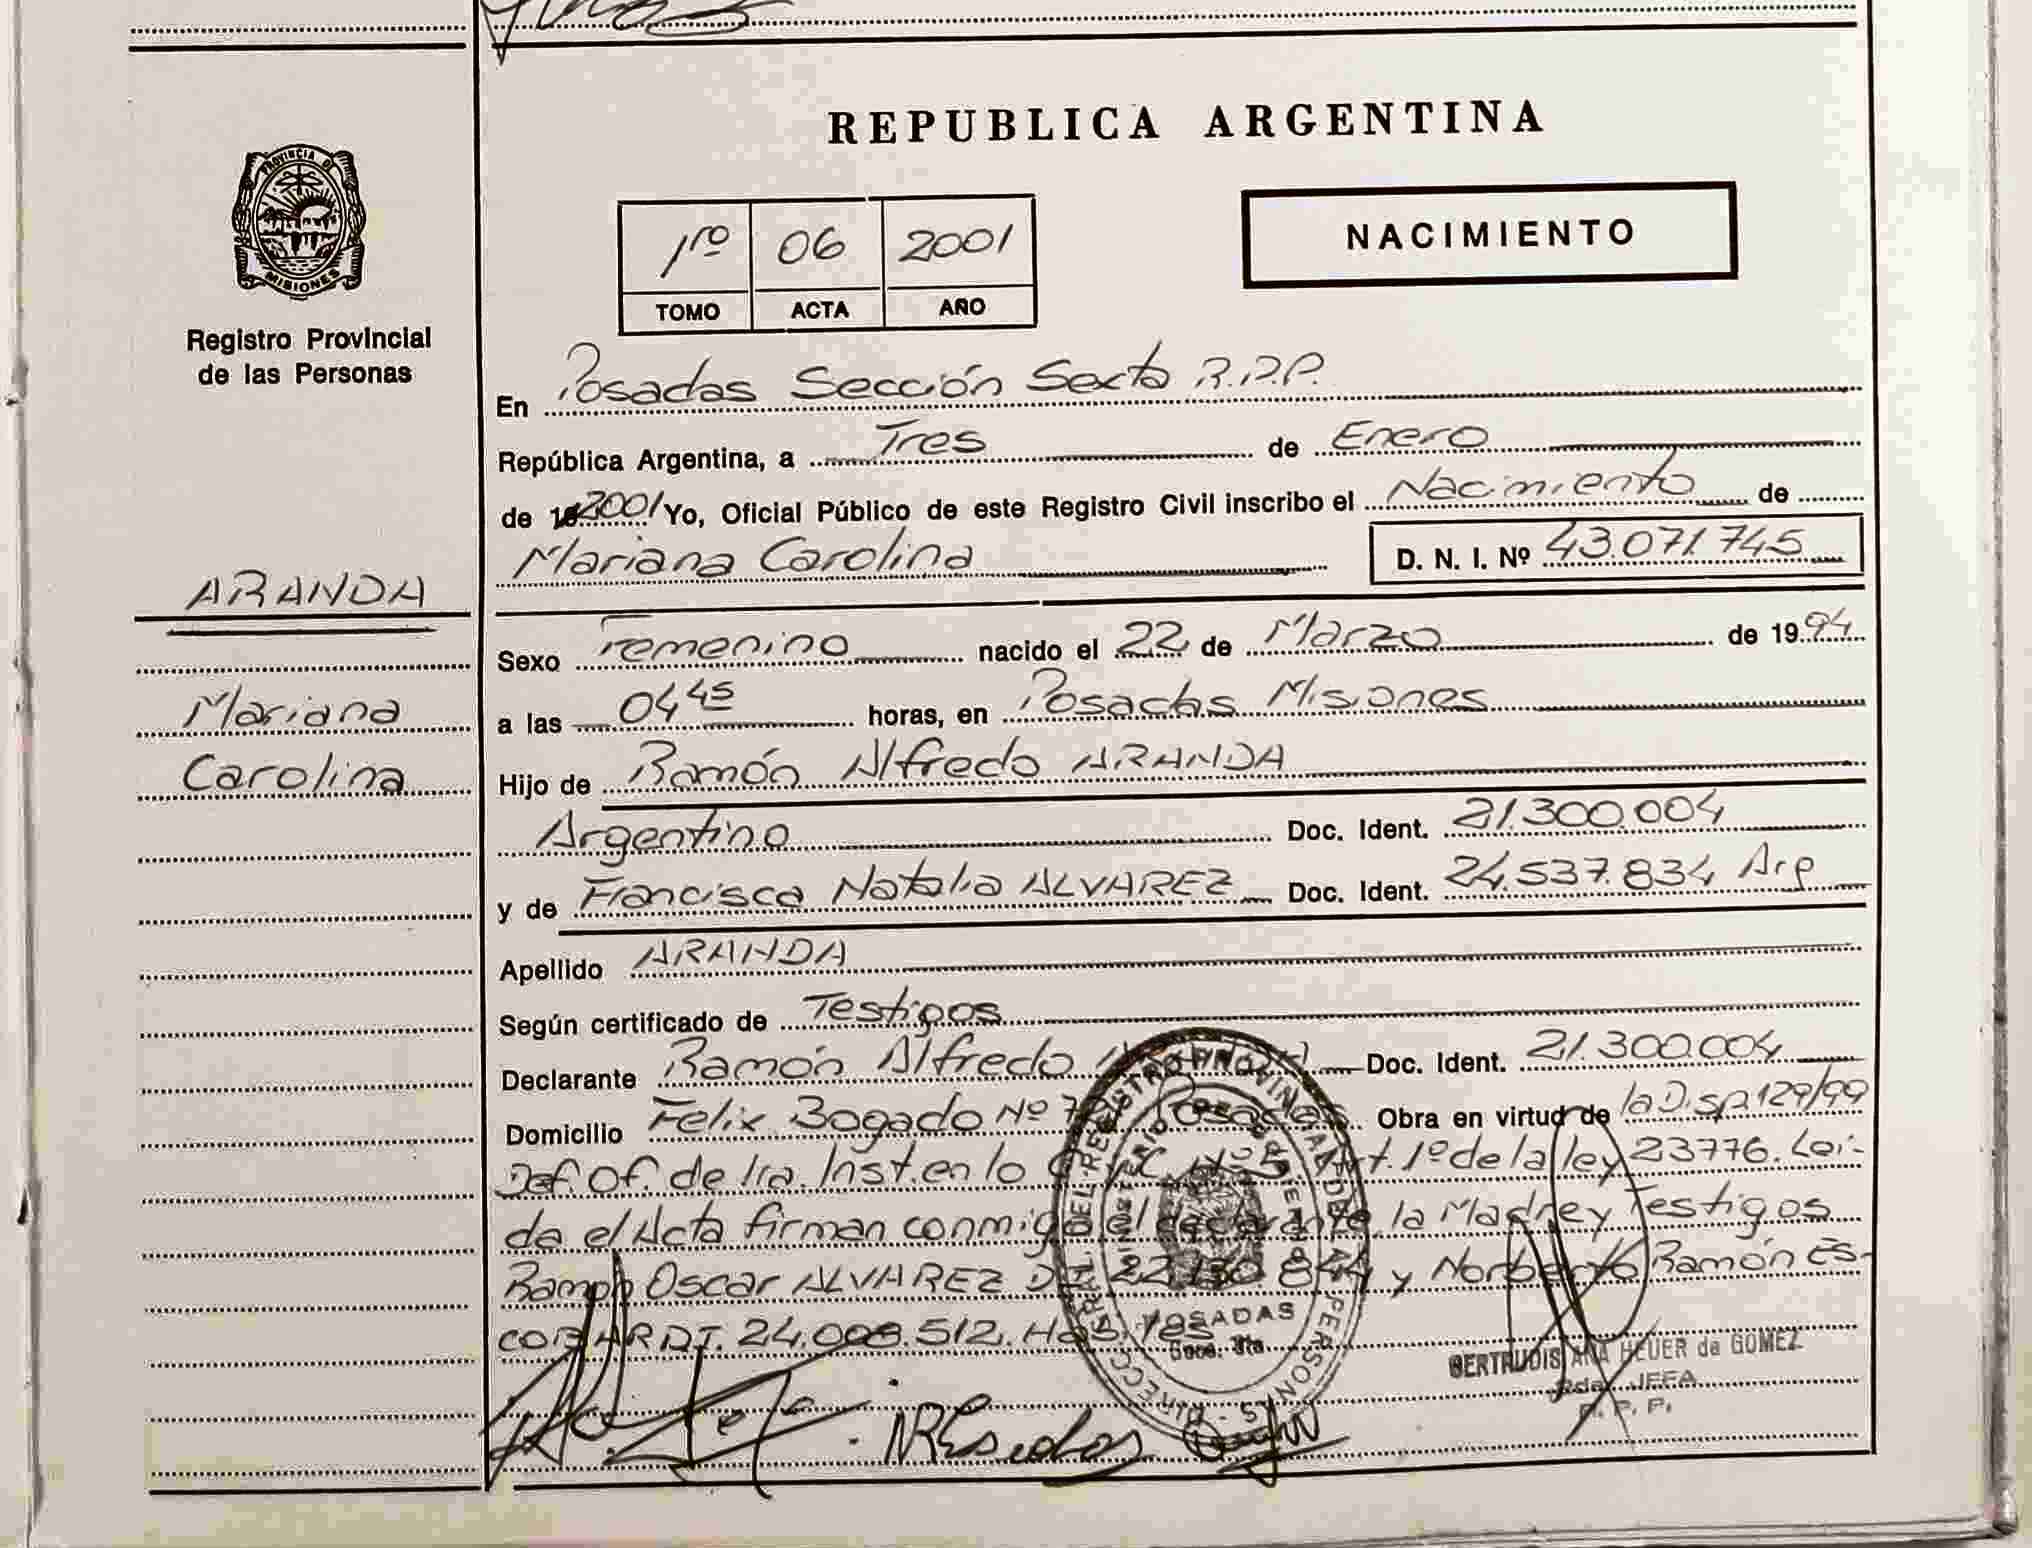 REPUBLICA ARGENTINA
PROVINCIA DE
MISIONES
Registro Provincial
de las Personas
1ro 06 2001
TOMO ACTA AÑO
NACIMIENTO
En Posadas Sección Sexta R.P.P.
República Argentina, a Tres de Enero
de 2001 Yo, Oficial Público de este Registro Civil inscribo el Nacimiento de
Mariana Carolina D. N. I. Nº 43.071.745
ARANDA
Mariana
Carolina
Sexo Femenino nacido el 22 de Marzo de 1994
a las 04 45 horas, en Posadas Misiones
Hijo de Ramón Alfredo ARANDA
Argentino Doc. Ident. 21.300.004
y de Francisca Natalia ALVAREZ Doc. Ident. 24.537.834 Arg
Apellido ARANDA
Según certificado de Testigos
Declarante Ramón Alfredo Doc. Ident. 21.300.004
Domicilio Felix Bogado Nº Posadas Obra en virtud de la Disp. 129/99
Def. Of. de 1ra. Inst. en lo C. y C. Nº 5 Art. 1º de la ley 23776. Lei-
da el Acta firman conmigo el declarante, la Madre y Testigos
Ramon Oscar ALVAREZ y Norberto Ramón Es-
COBARDI. 24.008.512.
POSADAS
Secc. 6ta
GERTRUDIS ANA HEUER de GOMEZ
JEFA
R. P. P.